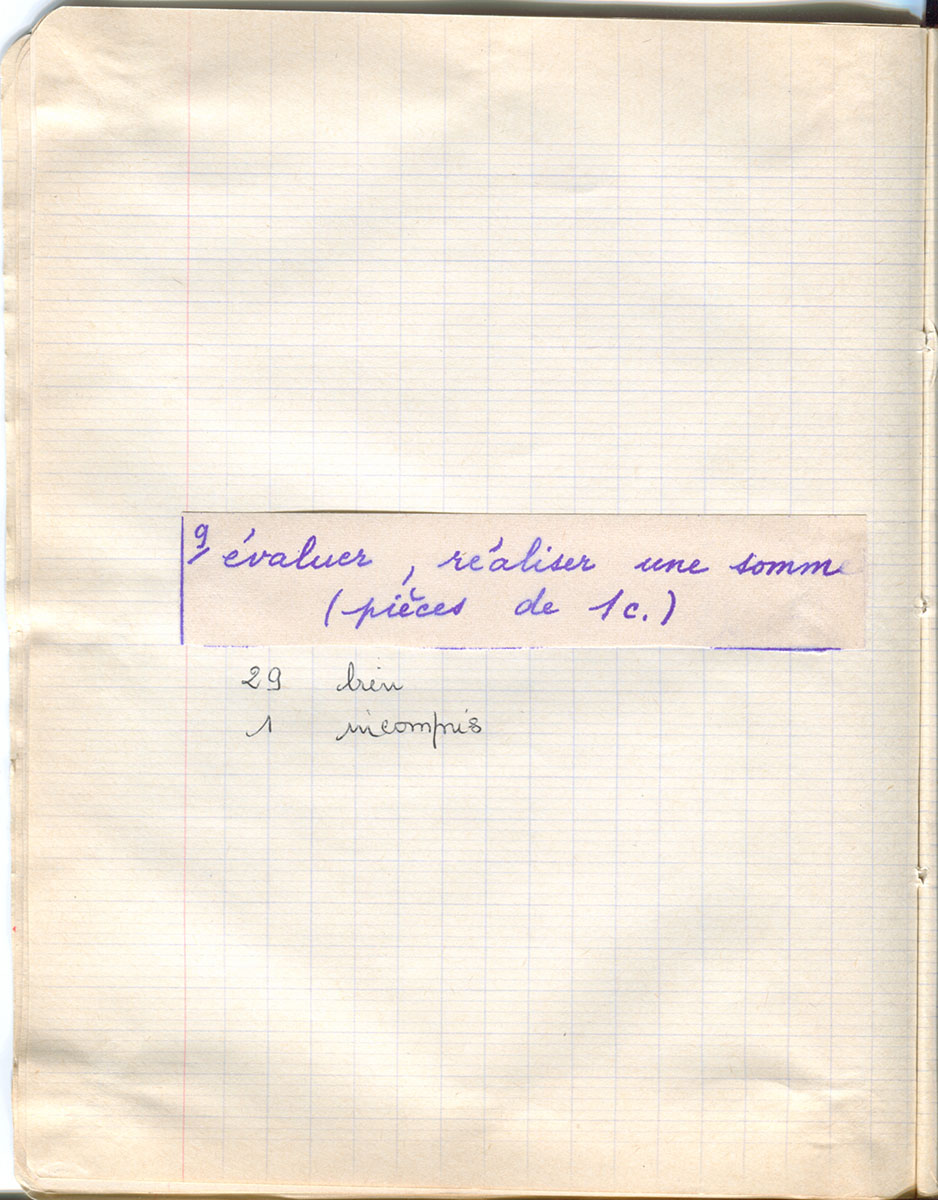 9/ évaluer, réaliser une somme
(pièces de 1c.)
29 bien
1 incompris